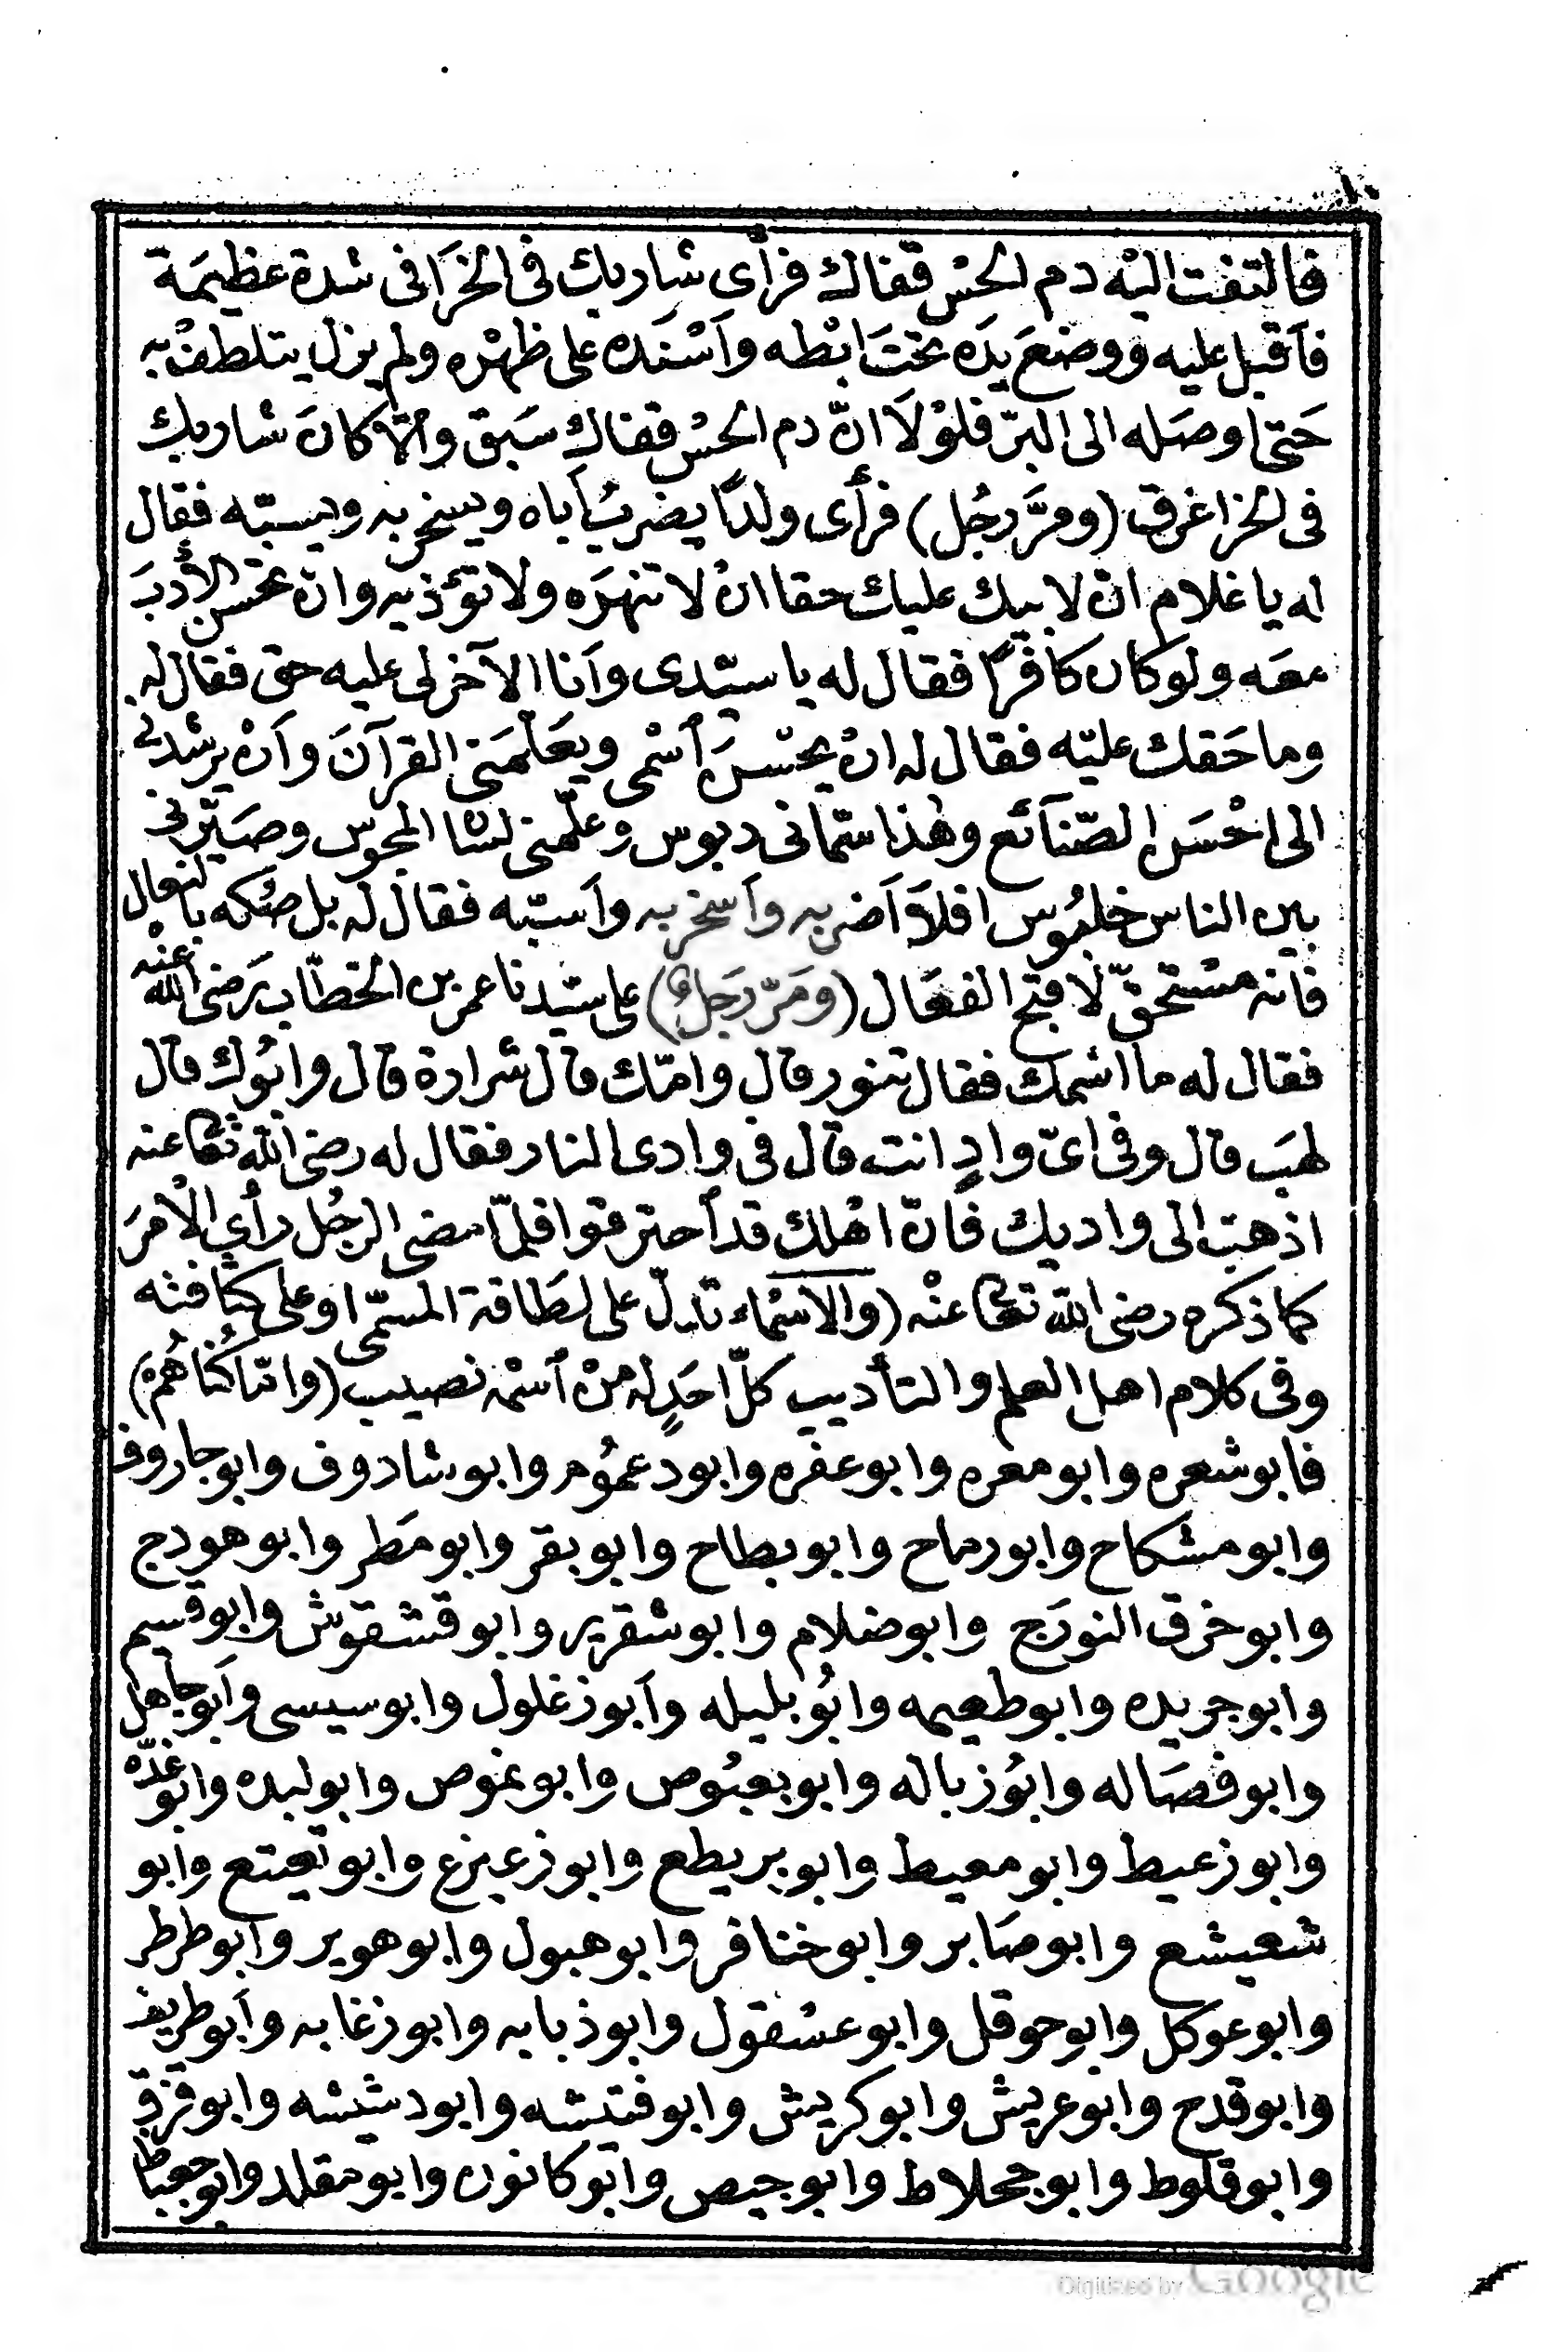 ١٠
فالتفت اليْه دم الحسْ قفاك فرأى شاربك فى الخرَا فى شدة عظيمَة
فاَقبل عليه ووضعَ يدَه تحتَ ابْطه واَسْنَده على ظهْره ولم يزل يتلطفْ به
حَتى اوصَله الى البرّ فلوْلاَ انّ دم الحسْ قفاك سَبق والّا كانَ شاربك
فى الخرا غرق (ومرَّ رجُل) فرأى ولدًا يضربُ اَباه ويسخر به ويسبّه فقال
له يا غلام ان لابيك عليك حقا انْ لا تنهرَه ولا تؤذيه وان تحسن الأدبَ
معَه ولو كان كافرًا فقال له يا سيّدى واَنا الآخر لى عليه حق فقال له
وما حَقك عليْه فقال له انْ يحسّنَ اسْمى ويعَلّمَنى القرآنَ واَنْ يرشدنى
الى احْسَن الصّنآئع وهٰذا سمّانى دبوس وعلّمنى لسْا المجوس وصَيّرنى
بين الناس خلبُوس افلاَ اَضربه واَسخر به واَسبّه فقال له بل صُكه بالنعال
فانه مسْتحقّ لاقبح الفعَال (ومَرّ رَجلٌ) على سيّدنا عمر بن الخطّاب رَضى الله عنْه
فقال له ما اسْمك فقال تنور قال وامّك قال شرارة قال وابُوك قال
لهبَ قال وفى اىّ وادٍ انت قال فى وادى النار فقال له رضى الله تعا عنه
اذهبْ الى واديك فانّ اهْلك قد احترقوا فلمّا مضى الرجُل رأى الْامرَ
كما ذكره رضى الله تعا عنْه (والاسْماء تدلّ على لطَافة المسمّى او على كثافته
وفى كلام اهل العلم والتأديب كلّ احَدٍ له منْ اسْمه نصيب (وامّا كُناهُمْ)
فابو شعره وابو معره وابو عفره وابو دعمُوم وابو شادوف وابو جاروف
وابو مشكاح وابو رماح وابو بطاح وابو بقر وابو مَطر وابو هودج
وابو خرق النورَج وابو ضلام وابو شقرير وابو قشقوش وابو قسيم
وابو جريده وابو طعيمه وابُو بليله واَبو زغلول وابو سيسى واَبو جاهل
وابو فصَاله وابُو زباله وابو بعبُوص وابو نموص وابو لبده وابو غدّه
وابو زعيط وابو معيط وابو بريطع وابو زعيزع وابو تعيتع وابو
شعيشع وابو صَابر وابو خنافر وابو هبول وابو هوير وابو طرطر
وابو عوكل وابو حوقل وابو عسْقول وابو ذبابه وابو زغابه واَبو طريف
وابو قدح وابو عريش وابو كريش وابو فتيشه وابو دشيشه وابو قزق
وابو قلوط وابو جحلاط وابو جيص وابو كانون وابو مقلد وابو
Digitized by Google